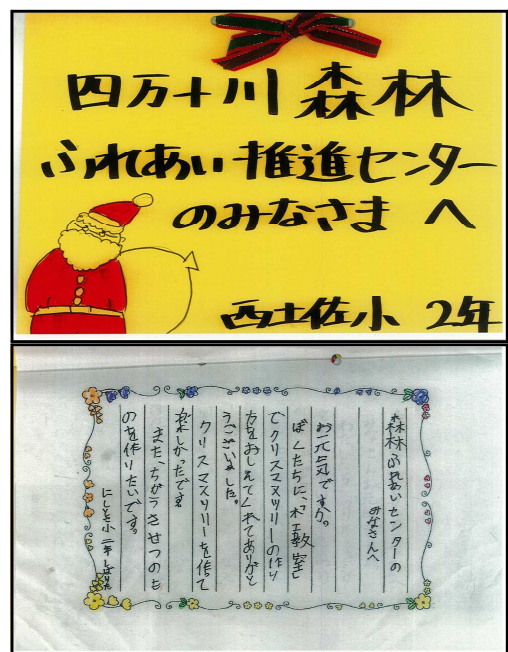 四万十川 森林
ふれあい推進センター
のみなさま へ
西土佐小 2年
森林ふれあいセンターの
みなさんへ
お元気ですか。
ぼくたちに、「木工教室」
でクリスマスツリーの作り
方をおしえてくれてありがと
うございました。
クリスマスツリーを作て
たのしかったです。
また、ちがうきせつのも
のを作りたいです。
にしとさ小 二年